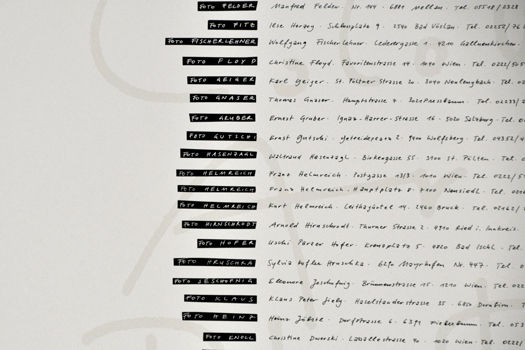 FOTO FELDER Manfred Felder · Nr. 144 · 6881 Mellau · Tel. 05518/2328
FOTO FITZ Ilse Herzog · Schlossplatz 9 · 2540 Bad Vöslau · Tel. 02252/76
FOTO FISCHERLEHNER Wolfgang Fischerlehner · Lederergasse 1 · 4210 Gallneukirchen ·
FOTO FLOYD Christine Floyd · Favoritenstrasse · 1040 Wien · Tel. 0222/505
FOTO GEIGER Karl Geiger · St. Pöltner Strasse 20 · 3040 Neulengbach · Tel. 02
FOTO GNASER Thomas Gnaser · Hauptstrasse · 3020 Pressbaum · Tel. 02233/2
FOTO GRUBER Ernest Gruber · Ignaz-Harrer-Strasse 16 · 5020 Salzburg · Tel. 0
FOTO GUTSCHI Ernst Gutschi · Getreideplatz 2 · 9400 Wolfsberg · Tel. 04352/4
FOTO HASENZAGL Waltraud Hasenzagl · Birkengasse 55 · 3100 St. Pölten · Tel. 0
FOTO HELMREICH Franz Helmreich · Postgasse 1313 · 1010 Wien · Tel. 0222/5
FOTO HELMREICH Franz Helmreich · Hauptplatz 8 · 7100 Neusiedl · Tel. 02
FOTO HELMREICH Kurt Helmreich · Leithagürtel 14 · 2460 Bruck · Tel. 02162/
FOTO HIRNSCHRODT Arnold Hirnschrodt · Thurner Strasse 2 · 4910 Ried i. Innkreis
FOTO HOFER Uschi Parzer Hofer · Kreuzplatz 5 · 4820 Bad Ischl · Tel.
FOTO HRUSCHKA Sylvia Hruschka · 6290 Mayrhofen Nr. 447 · Tel.
FOTO JESCHOFNIG Elleonore Jeschofnig · Brünnerstrasse · 1210 Wien · Tel. 022
FOTO KLAUS Klaus Peter · Haselstauderstrasse 35 · 6850 Dornbirn · T
FOTO HEINZ Heinz Jöbstl · Dorfstrasse 6 · Tel. 053
FOTO KNOLL Christine Dwerski · Lassallestrasse 40 · 1020 Wien · Tel. 0222/